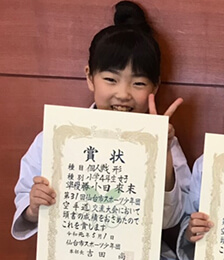 賞状
種目 個人戦 形
種別 小学4年生女子
準優勝 小田來未
第31回仙台市スポーツ少年団
空手道交流大会において
頭書の成績をおさめたので
これを賞します
仙台市スポーツ少年団
本部長 吉田 尚